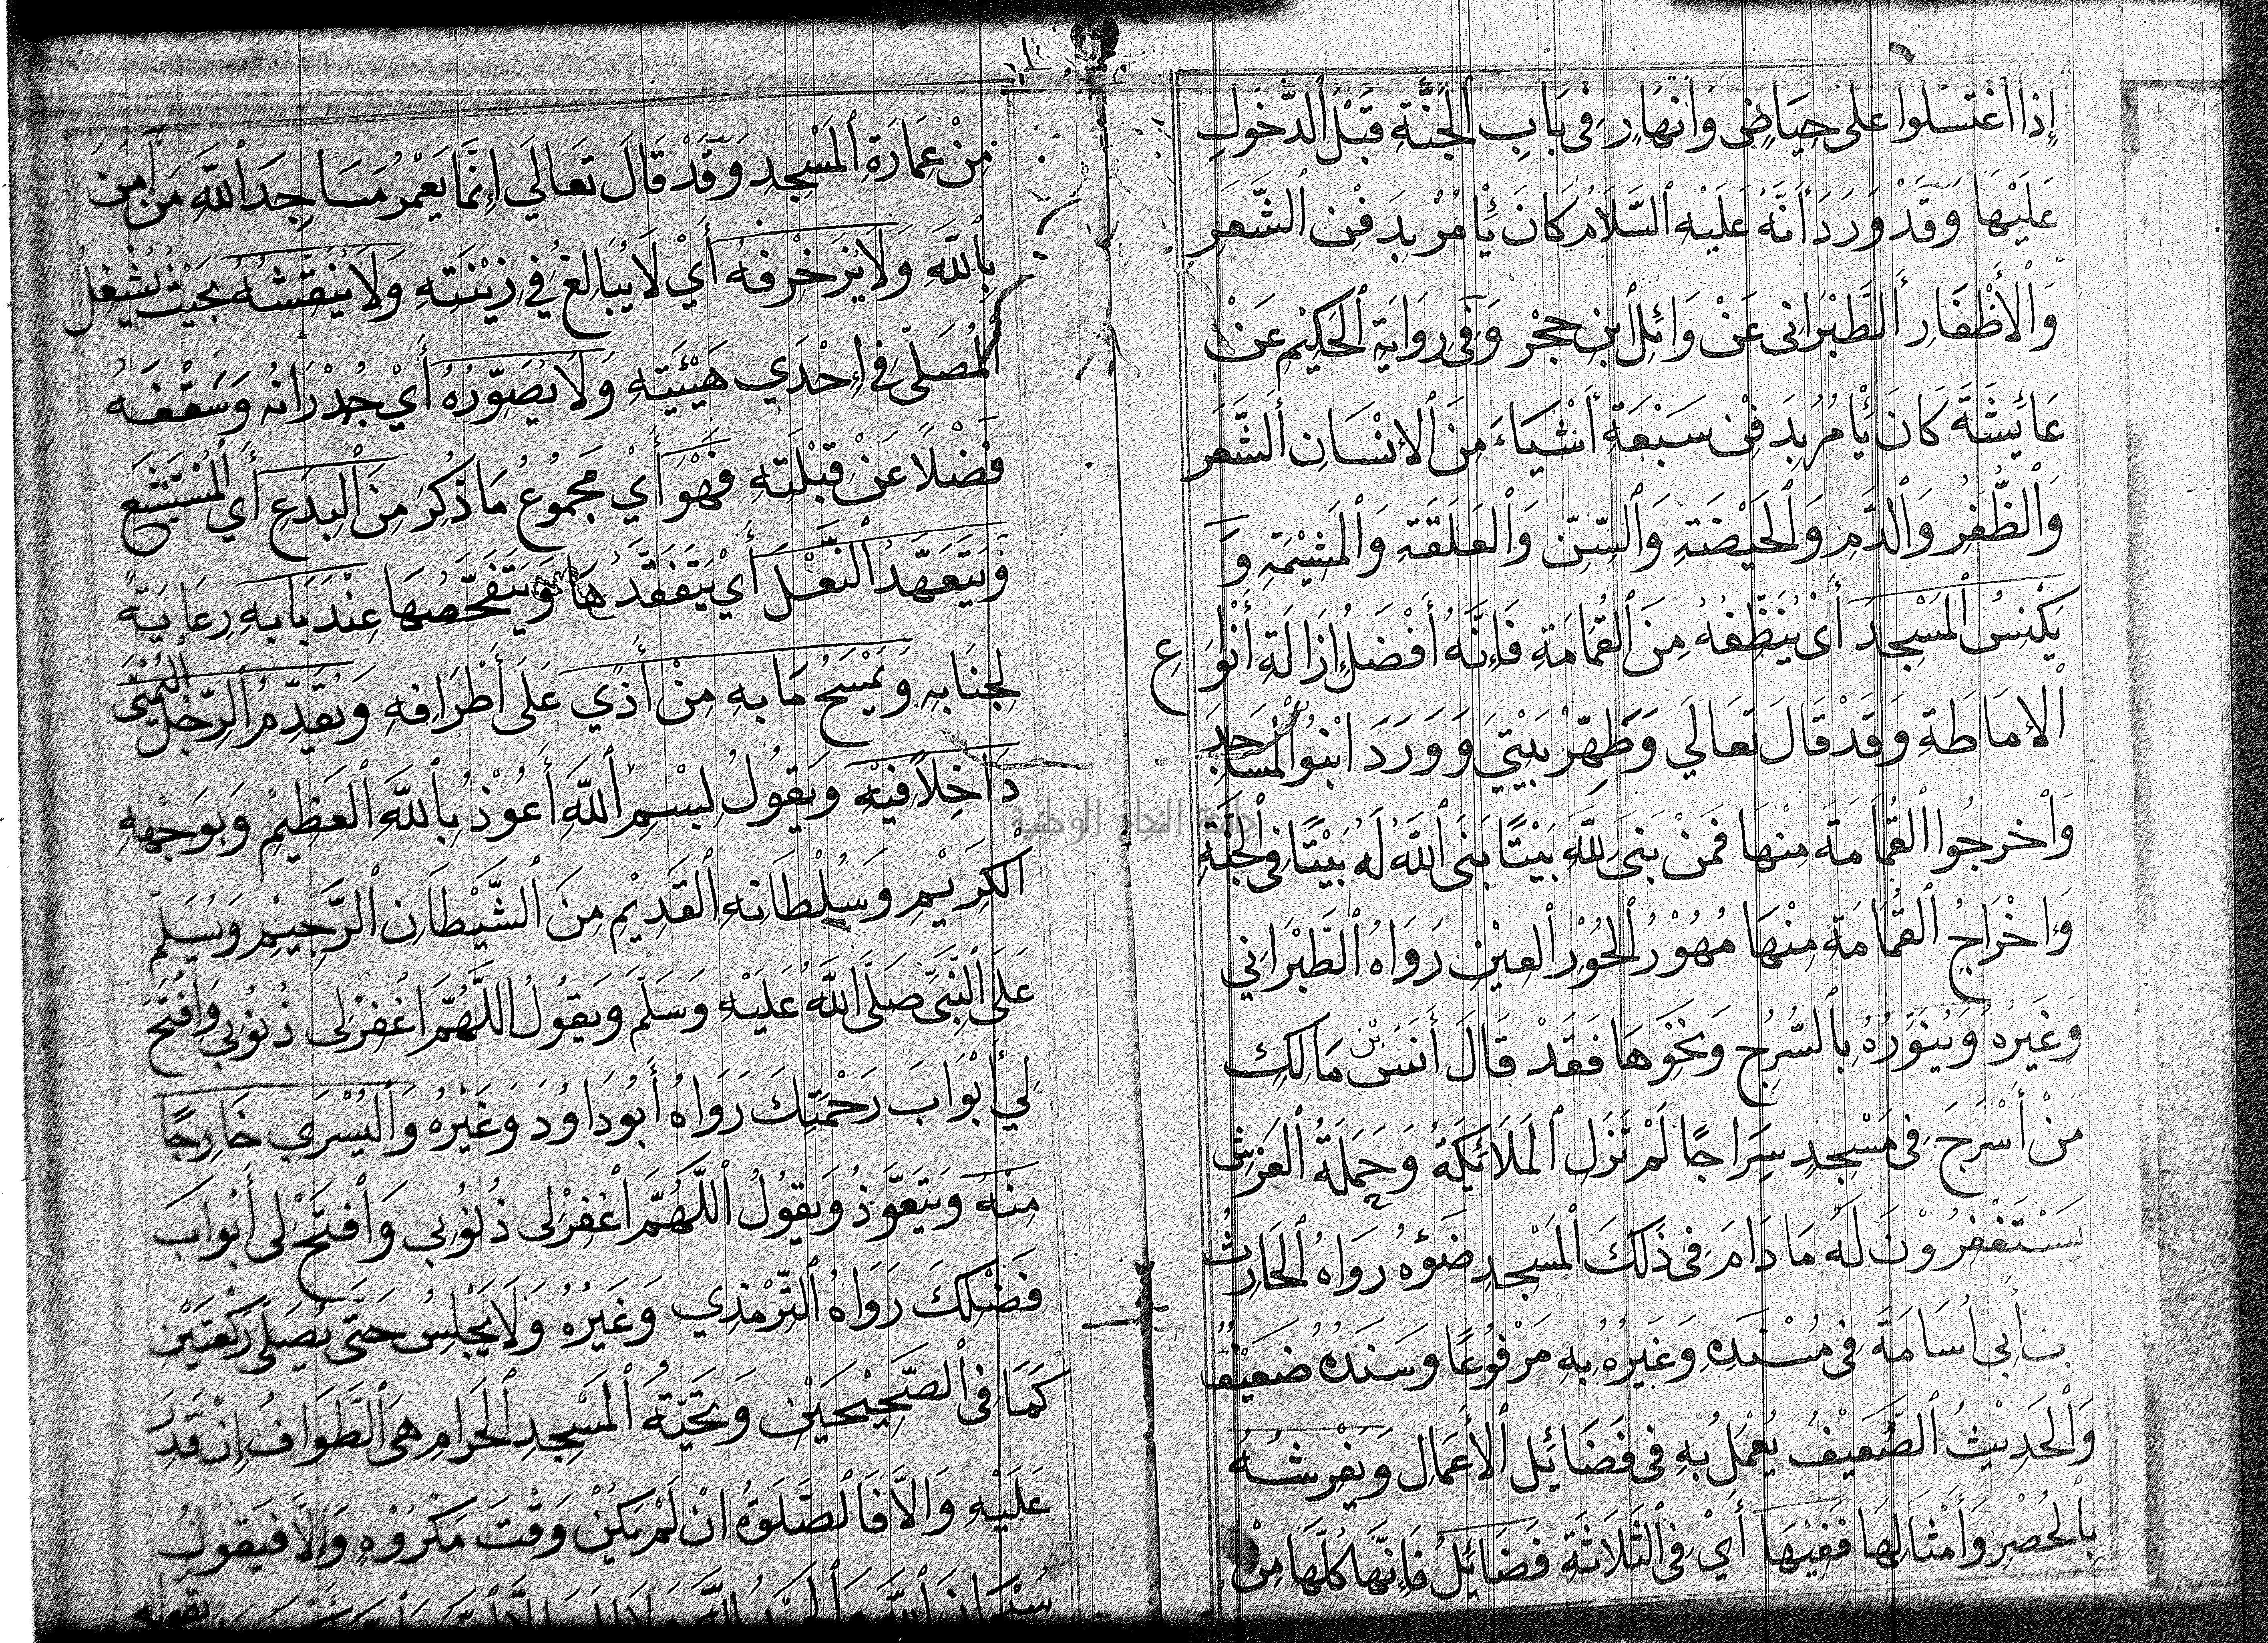 إِذَا اغْتَسَلُوا عَلَى حِيَاضٍ وَأَنْهَارٍ فِي بَابِ الْجَنَّةِ قَبْلَ الدُّخُولِ
عَلَيْهَا وَقَدْ وَرَدَ أَنَّهُ عَلَيْهِ السَّلَامُ كَانَ يَأْمُرُ بِدَفْنِ الشَّعَرِ
وَالْأَظْفَارِ الطَّبَرَانِي عَنْ وَائِلِ ابْنِ حُجْرٍ وَفِي رِوَايَةِ الْحَكِيمِ عَنْ
عَائِشَةَ كَانَ يَأْمُرُ بِدَفْنِ سَبْعَةِ أَشْيَاءَ مِنَ الْإِنْسَانِ الشَّعَرَ
وَالظُّفُرِ وَالدَّمِ وَالْحَيْضَةِ وَالسِّنِّ وَالْعَلَقَةِ وَالْمَشِيْمَةِ وَ
يَكْنِسُ الْمَسْجِدَ أَيْ يُنَظِّفُهُ مِنَ الْقُمَامَةِ فَإِنَّهُ أَفْضَلُ إِزَالَةِ أَنْوَاعِ
الْإِمَاطَةِ وَقَدْ قَالَ تَعَالَي وَطَهِّرْ بَيْتِيَ وَوَرَدَ ابْنُوا الْمَسَاجِدَ
وَأَخْرِجُوا الْقُمَامَةَ مِنْهَا فَمَنْ بَنَى لِلَّهِ بَيْتًا بَنَى اللَّهُ لَهُ بَيْتًا فِي الْجَنَّةِ
وَإِخْرَاجُ الْقُمَامَةِ مِنْهَا مُهُوْرُ الْحُوْرِ الْعِيْنِ رَوَاهُ الطَّبَرَانِي
وَغَيْرُهُ وَيُنَوِّرُهُ بِالسُّرُجِ وَنَحْوِهَا فَقَدْ قَالَ أَنَسُ بْنُ مَالِكٍ
مَنْ أَسْرَجَ فِي مَسْجِدٍ سِرَاجًا لَمْ تَزَلِ الْمَلَائِكَةُ وَحَمَلَةُ الْعَرْشِ
يَسْتَغْفِرُوْنَ لَهُ مَا دَامَ فِي ذَلِكَ الْمَسْجِدِ ضَوْؤُهُ رَوَاهُ الْحَارِثُ
بن أَبِي أُسَامَةَ فِي مُسْنَدِهِ وَغَيْرُهُ بِهِ مَرْفُوْعًا وَسَنَدُهُ ضَعِيْفٌ
وَالْحَدِيْثُ الضَّعِيْفُ يُعْمَلُ بِهِ فِي فَضَائِلِ الْأَعْمَالِ وَيَفْرِشُهُ
بِالْحُصْرِ وَأَمْثَالِهَا فَفِيْهَا أَيْ فِي الثَّلَاثَةِ فَضَائِلُ فَإِنَّهَا كُلَّهَا مِنْ
مِنْ عِمَارَةِ الْمَسْجِدِ وَقَدْ قَالَ تَعَالَي إِنَّمَا يَعْمُرُ مَسَاجِدَ اللَّهِ مَنْ أَمَنَ
بِاللَّهِ وَلَا يُزَخْرِفُهُ أَيْ لَا يُبَالِغُ فِي زِيْنَتِهِ وَلَا يُنَقِّشُهُ بِحَيْثُ يُشْغِلُ
الْمُصَلِّى فِي إِحْدَي هَيْئَتِهِ وَلَا يُصَوِّرُهُ أَيْ جُدْرَانُهُ وَسَقْفَهُ
فَضْلًا عَنْ قِبْلَتِهِ فَهُوَ أَيْ مَجْمُوعُ مَا ذُكِرَ مِنَ الْبِدَعِ أَيِ الْمُسْتَشْنَعِ
وَيَتَعَهَّدُ النَّعْلَ أَيْ يَتَفَقَّدُهَا وَيَتَفَحَّصُهَا عِنْدَ بَابِهِ رِعَايَةً
لِجَنَابِهِ وَيَمْسَحُ مَا بِهِ مِنْ أَذًي عَلَى أَطْرَافِهِ وَيُقَدِّمُ الرِّجْلَ الْيُمْنَى
دَاخِلًا فِيْهِ وَيَقُولُ بِسْمِ اللَّهِ أَعُوْذُ بِاللَّهِ الْعَظِيْمِ وَبِوَجْهِهِ
الْكَرِيْمِ وَسُلْطَانِهِ الْقَدِيْمِ مِنَ الشَّيْطَانِ الرَّجِيْمِ وَيُسَلِّمُ
عَلَى النَّبِيِّ صَلَّى اللَّهُ عَلَيْهِ وَسَلَّمَ وَيَقُولُ اللَّهُمَّ اغْفِرْ لِي ذُنُوْبِي وَافْتَحْ
لِي أَبْوَابَ رَحْمَتِكَ رَوَاهُ أَبُو دَاوُدَ وَغَيْرُهُ وَالْيُسْرَي خَارِجًا
مِنْهُ وَيَتَعَوَّذُ وَيَقُولُ اللَّهُمَّ اغْفِرْ لِي ذُنُوْبِي وَافْتَحْ لِي أَبْوَابَ
فَضْلِكَ رَوَاهُ التِّرْمِذِي وَغَيْرُهُ وَلَا يَجْلِسُ حَتَّى يُصَلِّيَ رَكْعَتَيْنِ
كَمَا فِي الصَّحِيْحَيْنِ وَتَحِيَّةُ الْمَسْجِدِ الْحَرَامِ هِيَ الطَّوَافُ إِنْ قَدَرَ
عَلَيْهِ وَإِلَّا فَالصَّلَوةُ انْ لَمْ يَكُنْ وَقْتَ مَكْرُوْهٍ وَإِلَّا فَيَقُولُ
سُبْحَانَ اللَّهِ وَالْحَمْدُ لِلَّهِ
جامعة النجاح الوطنية